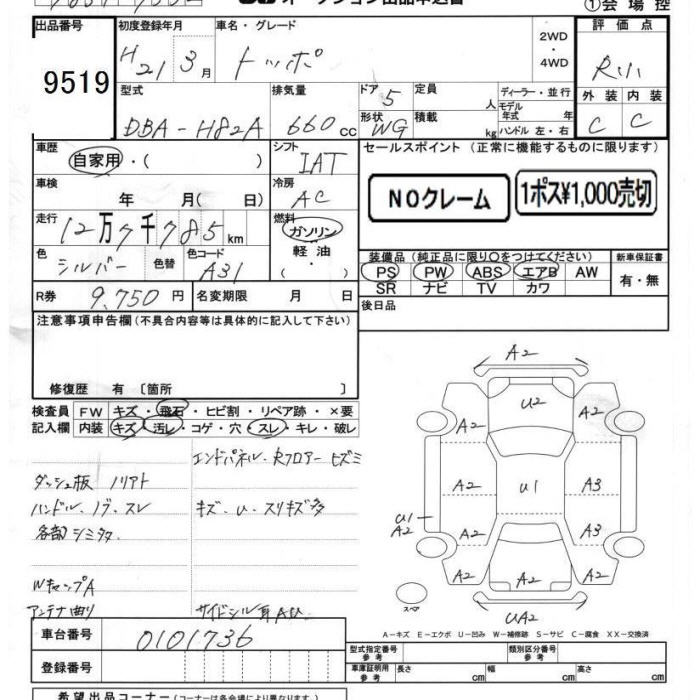 オークション出品申込書
①会場控
出品番号 初度登録年月 車名・グレード 評価点
9519 H21 3月 トッポ 2WD・4WD R小
型式 排気量 ドア 定員 ディーラー・並行 外装 内装
DBA-H82A 660cc 5 人 モデル年式 年 C C
形状 積載 ハンドル 左・右
WG kg
車歴 シフト セールスポイント (正常に機能するものに限ります)
自家用・( ) IAT
NOクレーム 1ポス¥1,000売切
車検 冷房
年 月(日) AC
走行 燃料
12万7千785km ガソリン
軽油
・
色 色替 色コード 装備品(純正品に限り〇をつけてください) 新車保証書
シルバー A31 PS PW ABS エアB AW 有・無
SR ナビ TV カワ
R券 9,750円 名変期限 月 日 後日品
注意事項申告欄(不具合内容等は具体的に記入して下さい)
修復歴 有 〔箇所 〕
検査員 FW キズ・飛石・ヒビ割・リペア跡・×要
記入欄 内装 キズ・汚レ・コゲ・穴・スレ・キレ・破レ
エンドパネル・Rフロアー ヒズミ
ダッシュ板 ノリアト
ハンドル、ノブ、スレ キズ、U、スリキズ多
各部シミタタ
WキャップA
アンテナ曲り サイドシル耳AU
A2
U2
A2 A2
A2 U1 A3
U1 A2
A2 A3
A2 A2 A2
スペア UA2
A-キズ E-エクボ U-凹み W-補修跡 S-サビ C-腐食 XX-交換済
車台番号 0101736
型式指定番号 参考 類別区分番号 参考
登録番号 車庫証明用 参考 長さ cm 幅 cm 高さ cm
希望出品コーナー(コーナーは各会場により異なります)